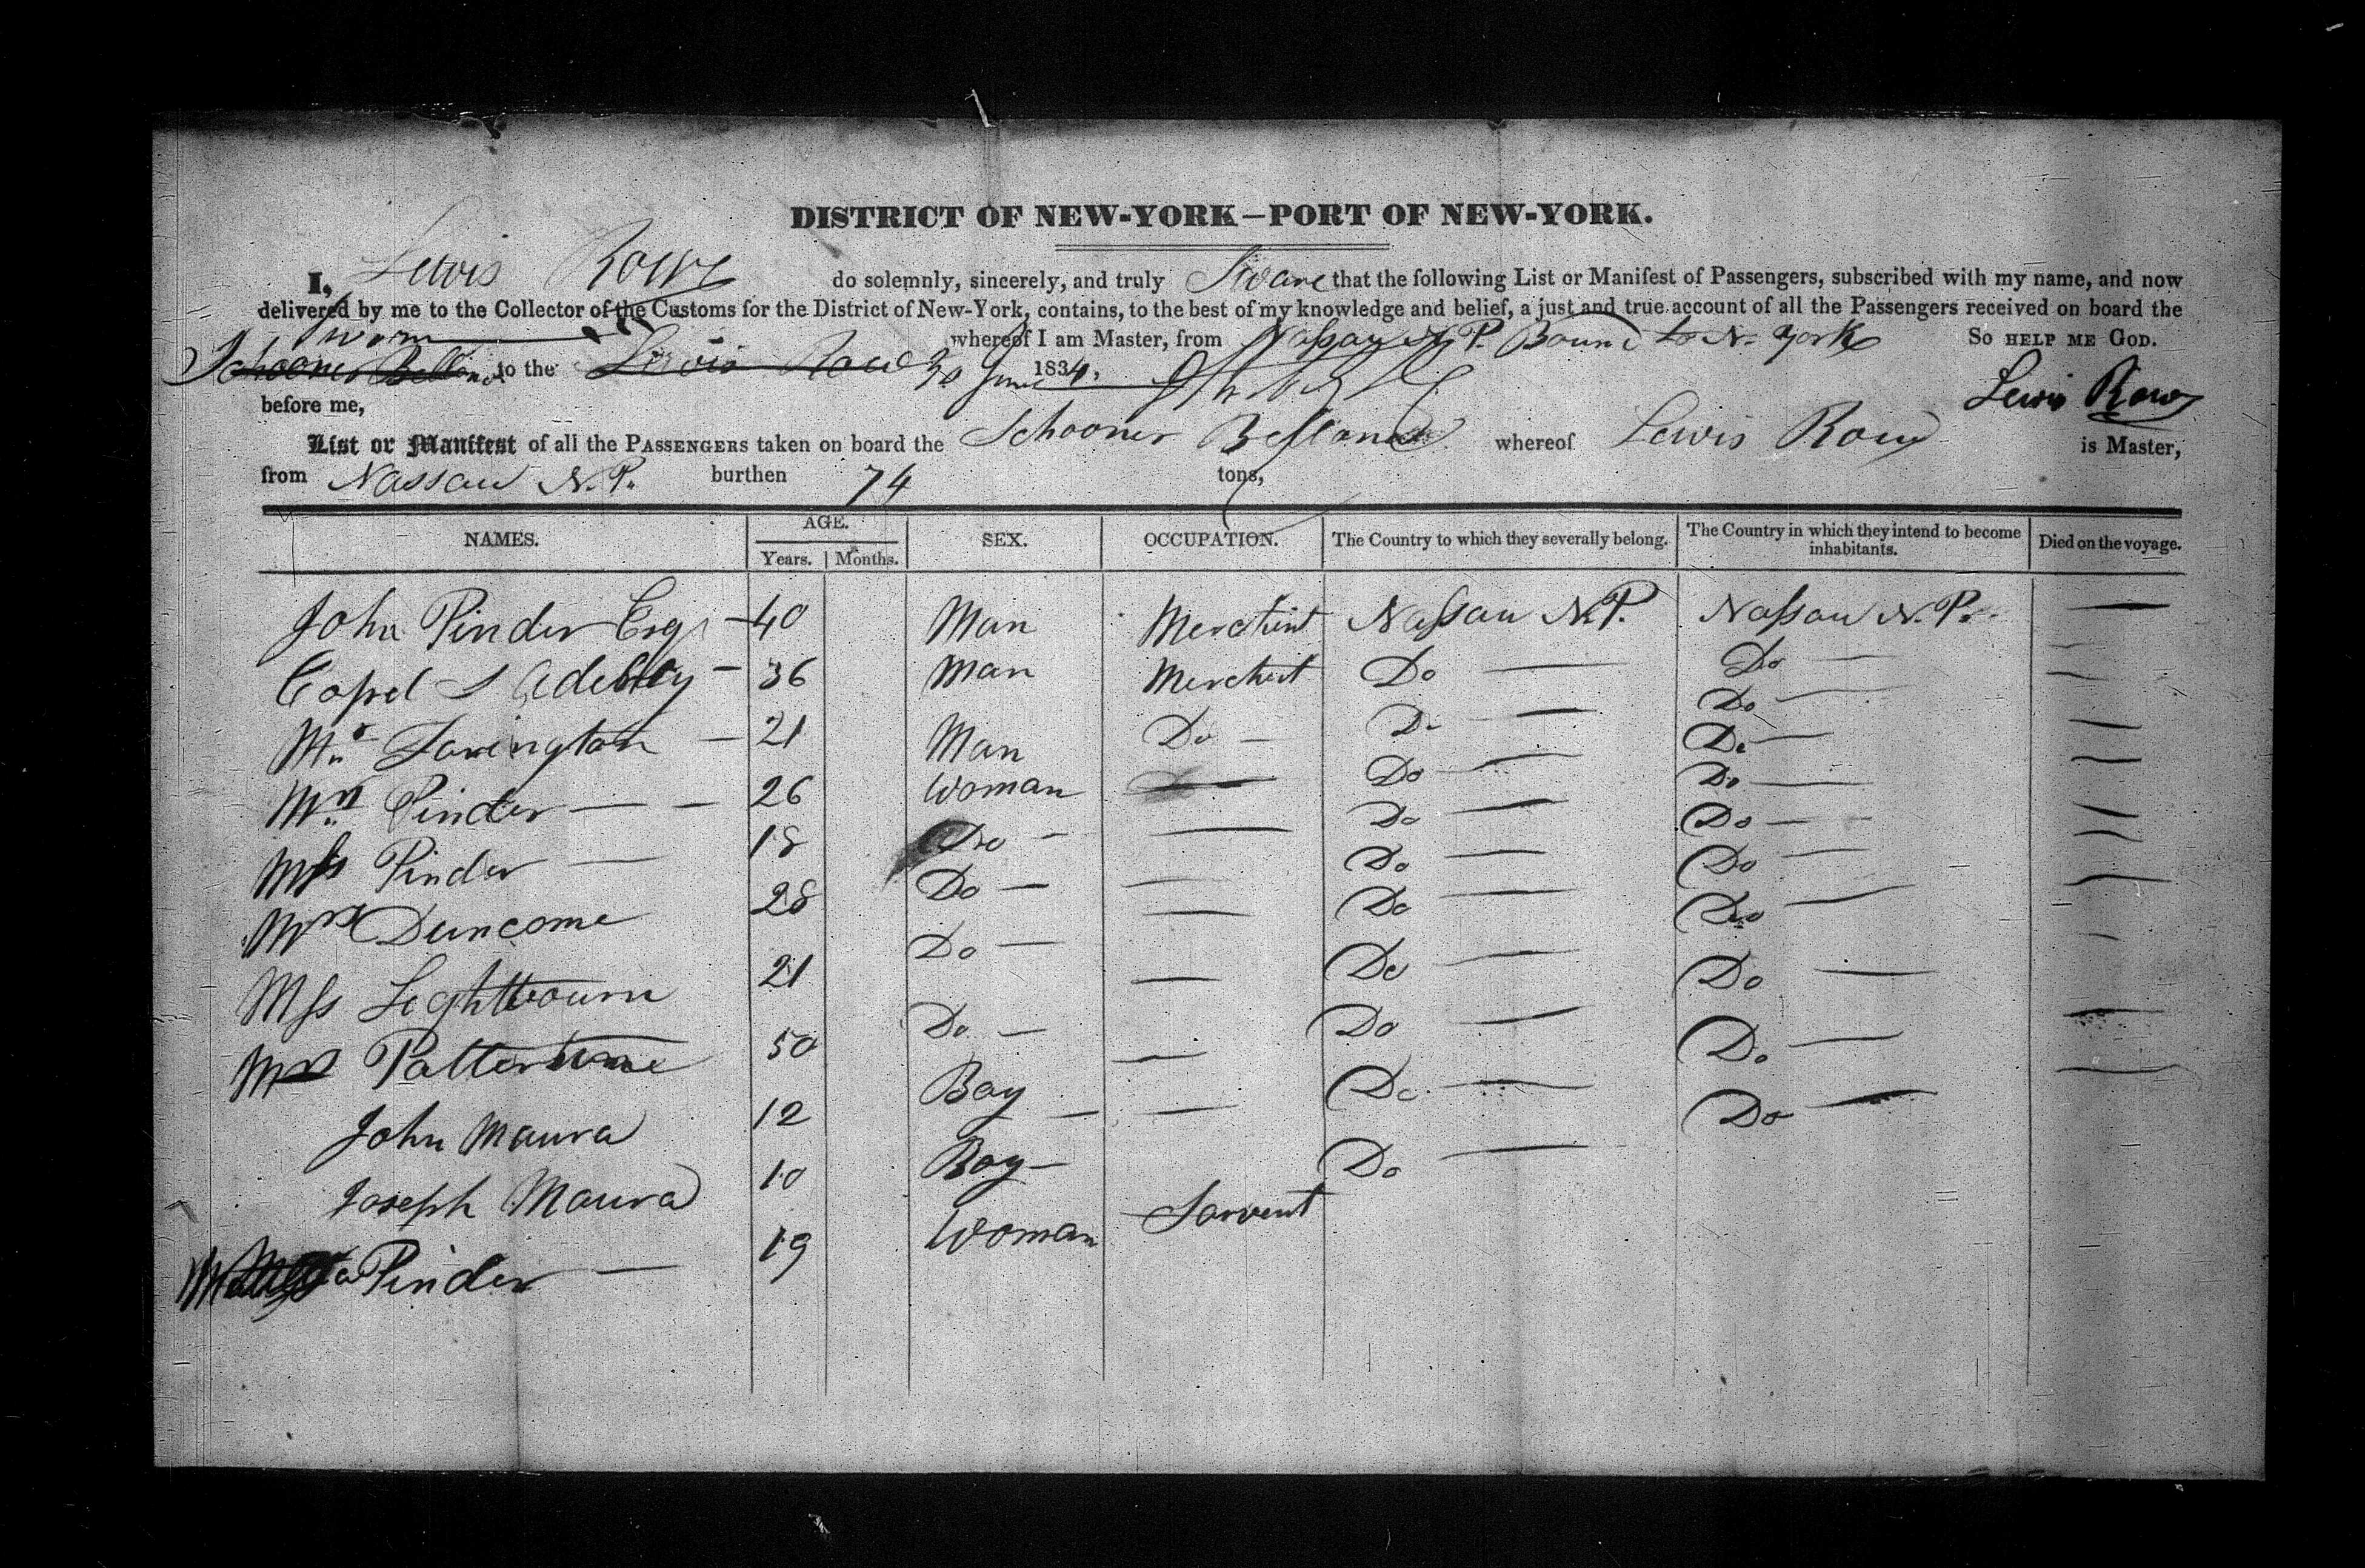 DISTRICT OF NEW-YORK—PORT OF NEW-YORK.
I, Lewis Rowe do solemnly, sincerely, and truly Sware that the following List or Manifest of Passengers, subscribed with my name, and now
delivered by me to the Collector of the Customs for the District of New-York, contains, to the best of my knowledge and belief, a just and true account of all the Passengers received on board the
whereof I am Master, from Nassau N. P. Bound to N. York So HELP ME GOD.
Sworn to the Lewis Rowe 30 June 1834,
Lewis Rowe
before me,
List or Manifest of all the PASSENGERS taken on board the Schooner whereof Lewis Rowe is Master,
from Nassau N. P. burthen 74 tons,
NAMES. AGE. Years. Months. SEX. OCCUPATION. The Country to which they severally belong. The Country in which they intend to become inhabitants. Died on the voyage.
John Pinder Esqr — 40 Man Merchint Nassau N. P. Nassau N. P. —
— 36 Man Merchint Do — Do —
Mr — 21 Man Do — Do — Do —
Mrs Pinder — — 26 Woman — Do — Do —
Miss Pinder — 18 Do — — Do — Do —
Mrs Duncome 28 Do — — Do — Do —
Miss Lightbourn 21 Do — — Do — Do —
Mrs 50 Do — — Do — Do —
John Maura 12 Boy — — Do — Do —
Joseph Maura 10 Boy — Do — Do —
Pinder — 19 Woman Sarvent Do —